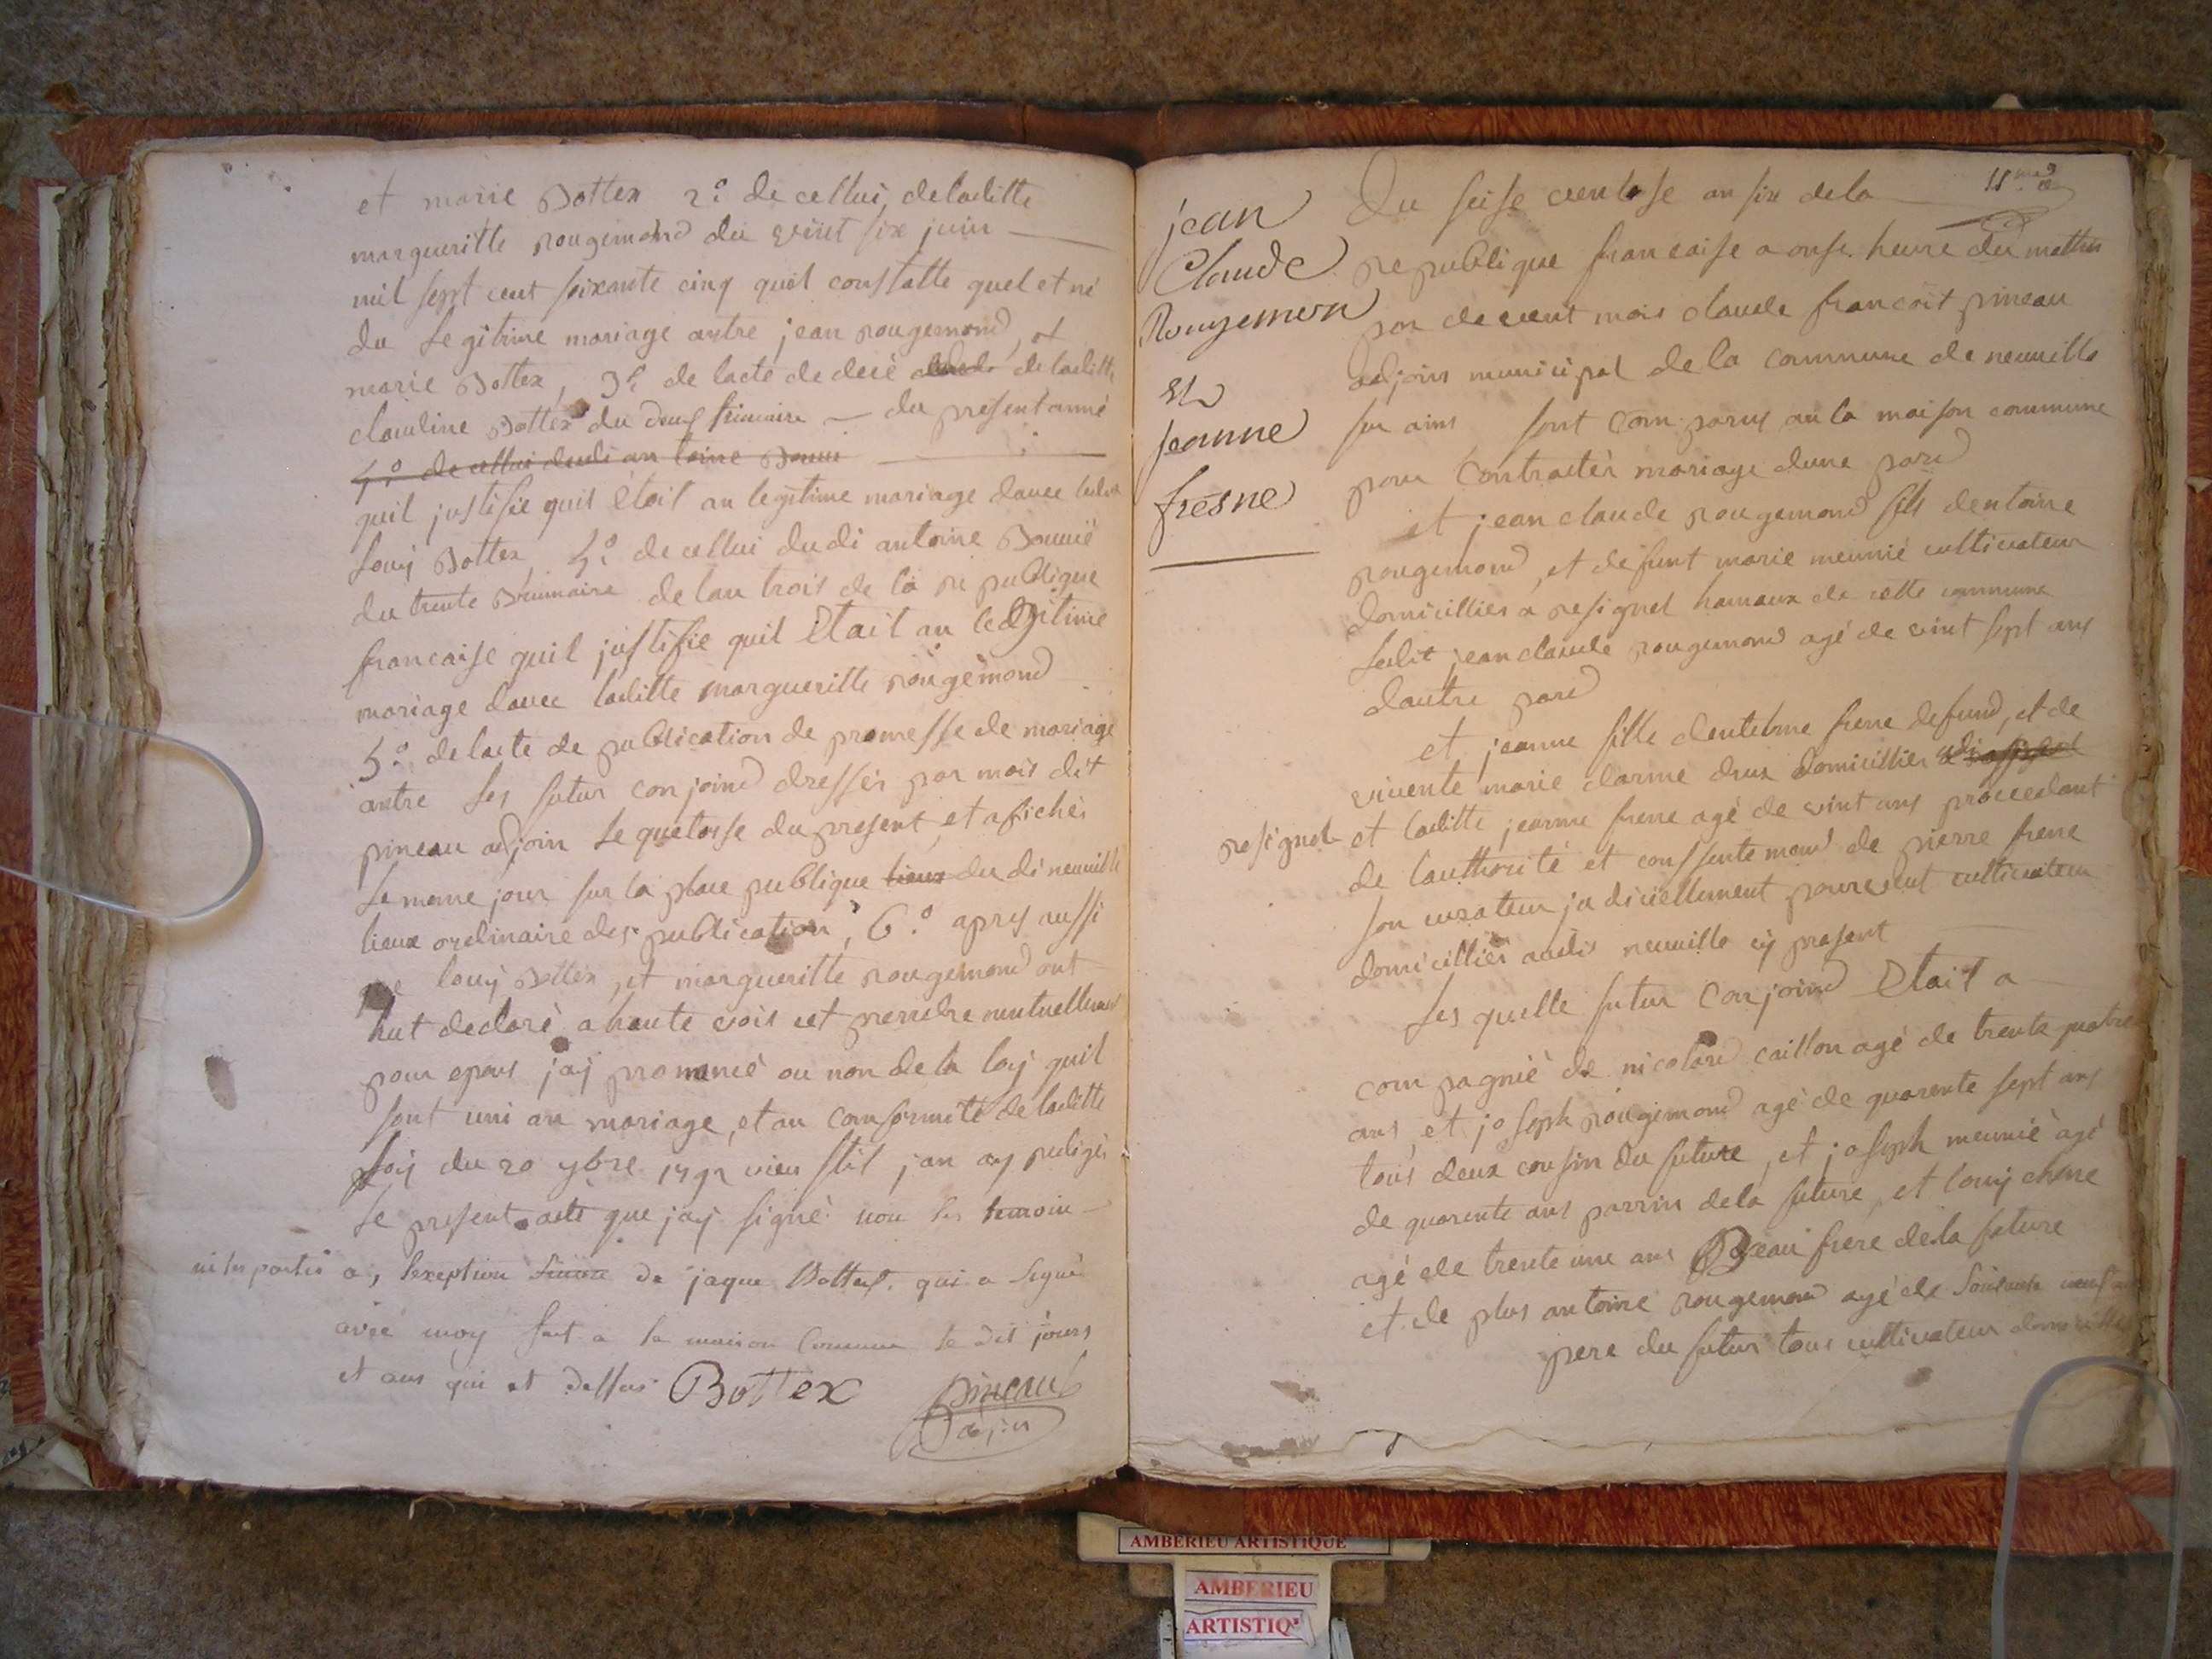 et marie Bottex 2.° de cellui deladitte
margueritte rougemond du vint six juin
mil sept cent soixante cinq quil constatte quel et né
du legitime mariage antre jean rougemond, et
marie Bottex, 3.° de lacte de decé de laditte
claudine Bottex du douz frimaire — du present anné
4.° de cellui dudi antoine Bonnié
quil justifie quil étoit an legitime mariage davec ledit
Louy Bottex, 4.° de cellui dudi antoine Bonnié
du trente Brumaire de lan trois de la republique
francaise quil justifie quil était an ledgitime
mariage davec laditte margueritte rougémond
5.° de lacte de publication de promesse de mariage
antre les futur conjoind dressés par mois dit
pineau adjoin le quatorse du present, et afichés
le meme jour sur la place publique lieux du di neuville
lieux ordinaire des publication, 6.° apres aussi
que louy Bottex, et margueritte rougemond ont
hut declaré a haute vois cet prendre mutuellement
pour epous jay prononcé ou non de la loy quil
sont uni an mariage, et an conformité de laditte
Loy du 20 9bre 1792 vieu stil jan ay redigés
le present acte que jay signé non les temoin
ni les partis a, lexeption de jaque Bottex. qui a signé
avec moy fait a la maison Commune le dit jours
et ans qui et dessus Bottex pineau
adjoin
11
jean
Claude
Rougemon
et
jeanne
fresne
Du seise ventose an six de la
republique francaise a onse heure du mattin
par devent mois claude francoit pineau
adjoins municipal de la commune de neuville
sur ains sont comparus an la maison commune
pour contractér mariage dune pard
et jean claude rougemond fills dentoine
rougemond, et defunt marie meunié cultivateur
domicilliés a resignel hamaux de cette commune
ledit jean claude rougemond agé de vint sept ans
dautre pard
et jeanne fille dentelme frene defund, et de
vivente marie clarme deux domicilliés adi
resignel et laditte jeanne frene agé de vint ans proccedant
de lauthorité et conssentemend de pierre frene
son curateur judiciellement pourevut cultivateur
domicilliés audis neuville cy present
Les quelle futur conjoind était a
compagnié de nicolard caillon agé de trente quatre
ans, et joseph rougemond agé de quarente sept ans
tous deux cousin du future, et joseph meunié agé
de quarente ans parrin de la future, et louy chene
agé de trente une ans Beau frere de la future
et de plus antoine rougemond agé de soixante neuf
pere du futur tous cultivateur domicilliés
AMBERIEU ARTISTIQUE
AMBERIEU
ARTISTIQ